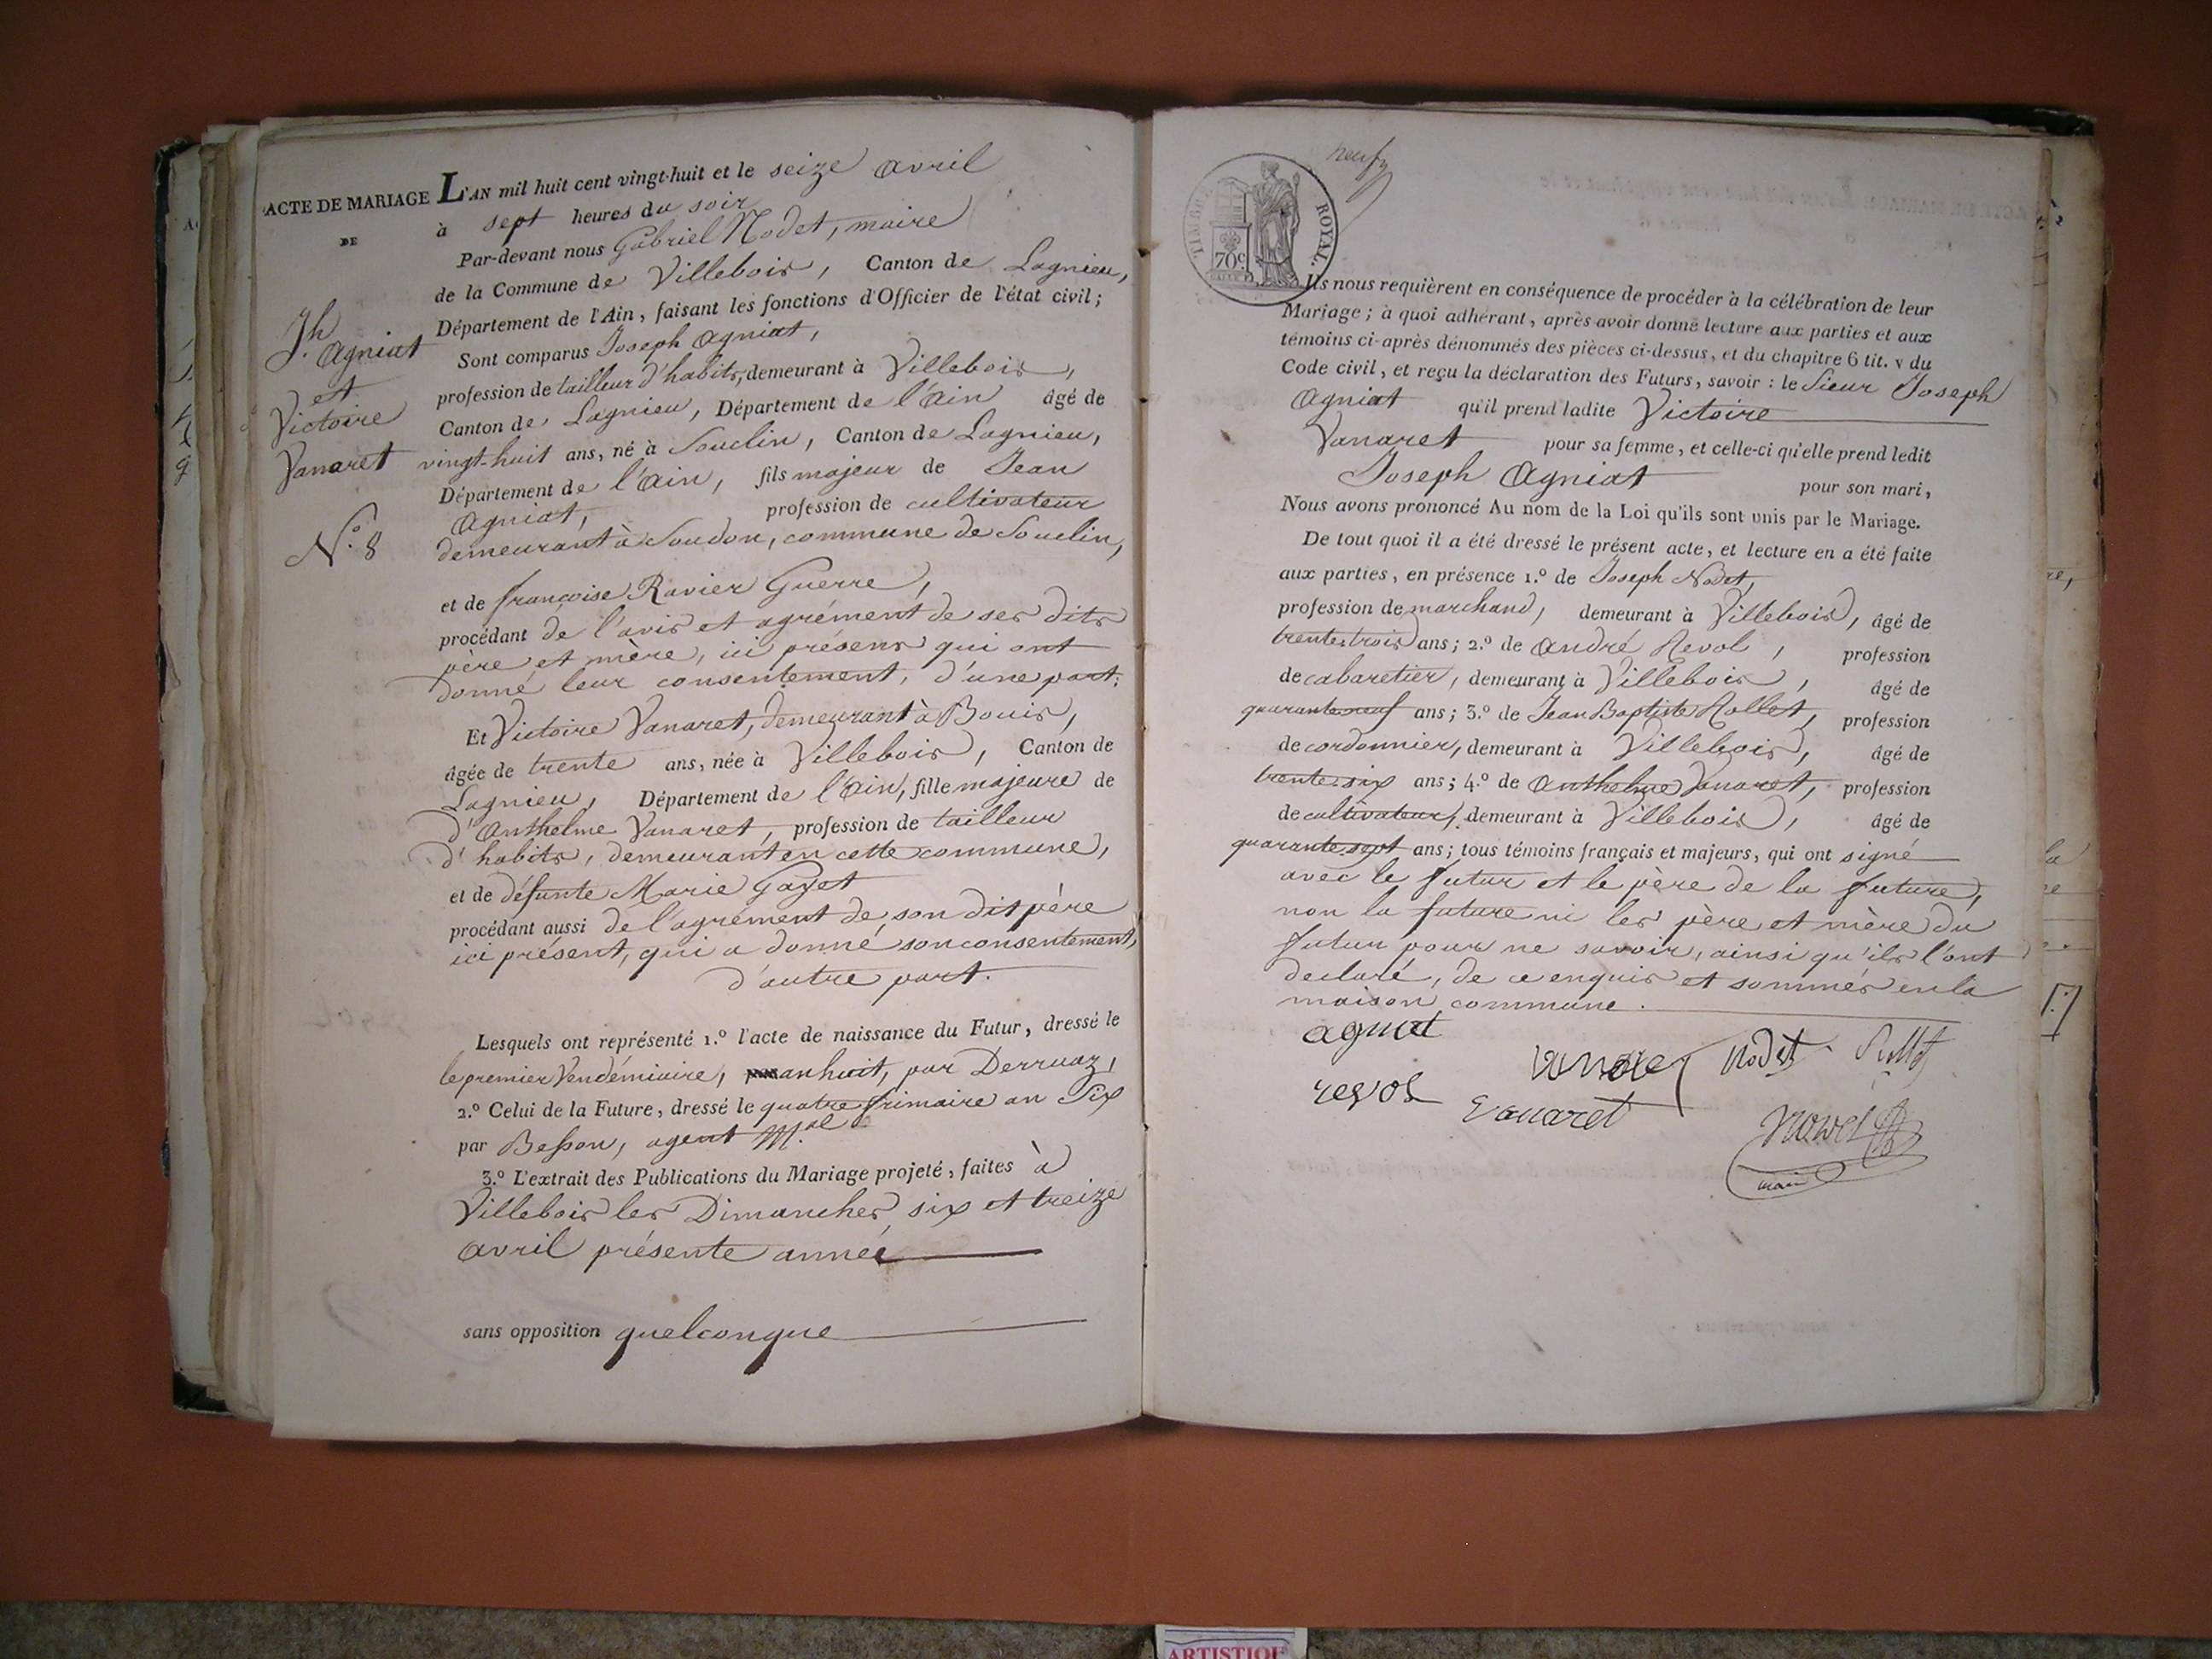 ACTE DE MARIAGE
DE
Jh
Agniat
et
Victoire
Vanaret
N.o 8
L'AN mil huit cent vingt-huit et le seize avril
à sept heures du soir
Par-devant nous Gabriel Nodet, maire
de la Commune de Villebois, Canton de Lagnieu,
Département de l'Ain, faisant les fonctions d'Officier de l'état civil;
Sont comparus Joseph Agniat,
profession de tailleur d'habits, demeurant à Villebois,
Canton de Lagnieu, Département de l'Ain âgé de
vingt-huit ans, né à Souclin, Canton de Lagnieu,
Département de l'Ain, fils majeur de Jean
Agniat, profession de cultivateur
demeurant à Soudon, commune de Souclin,
et de françoise Ravier Guerre,
procédant de l'avis et agrément de ses dits
père et mère, ici présens qui ont
donné leur consentement, d'une part;
Et Victoire Vanaret, demeurant à Bouis,
âgée de trente ans, née à Villebois, Canton de
Lagnieu, Département de l'Ain, fille majeure de
d'Anthelme Vanaret, profession de tailleur
d'habits, demeurant en cette commune,
et de défunte Marie Gayet
procédant aussi de l'agrément de son dit père
ici présent, qui a donné son consentement,
d'autre part.
Lesquels ont représenté 1.o l'acte de naissance du Futur, dressé le
le premier Vendémiaire, an huit, par Derruaz,
2.o Celui de la Future, dressé le quatre frimaire an Six
par Besson, agent M.al
3.o L'extrait des Publications du Mariage projeté, faites à
Villebois les Dimanches six et treize
avril présente année
sans opposition quelconque
TIMBRE ROYAL.
70c
Ils nous requièrent en conséquence de procéder à la célébration de leur
Mariage; à quoi adhérant, après avoir donné lecture aux parties et aux
témoins ci-après dénommés des pièces ci-dessus, et du chapitre 6 tit. v du
Code civil, et reçu la déclaration des Futurs, savoir: le Sieur Joseph
Agniat qu'il prend ladite Victoire
Vanaret pour sa femme, et celle-ci qu'elle prend ledit
Joseph Agniat pour son mari,
Nous avons prononcé Au nom de la Loi qu'ils sont unis par le Mariage.
De tout quoi il a été dressé le présent acte, et lecture en a été faite
aux parties, en présence 1.o de Joseph Nodet,
profession de marchand, demeurant à Villebois, âgé de
trente trois ans; 2.o de André Revol, profession
de cabaretier, demeurant à Villebois, âgé de
quarante neuf ans; 3.o de Jean Baptiste Rollet, profession
de cordonnier, demeurant à Villebois, âgé de
trente-six ans; 4.o de Anthelme Vanaret, profession
de cultivateur, demeurant à Villebois, âgé de
quarante-sept ans; tous témoins français et majeurs, qui ont signé
avec le futur et le père de la future,
non la future ni les père et mère du
futur pour ne savoir, ainsi qu'ils l'ont
declaré, de ce enquis et sommés en la
maison commune.
agniat
Nodet
revol
vanaret
maire
ARTISTIQUE